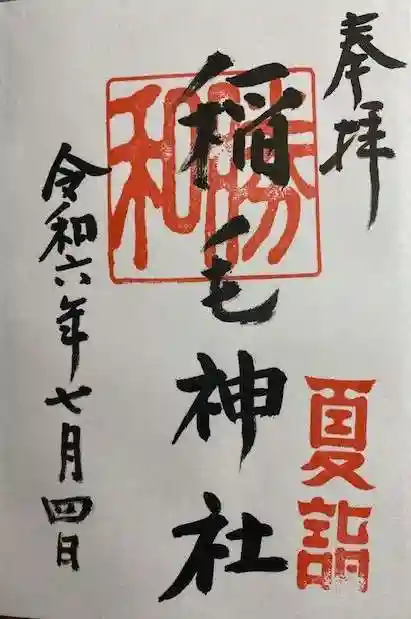 奉拝
夏詣
稲毛神社
勝和
令和六年七月四日